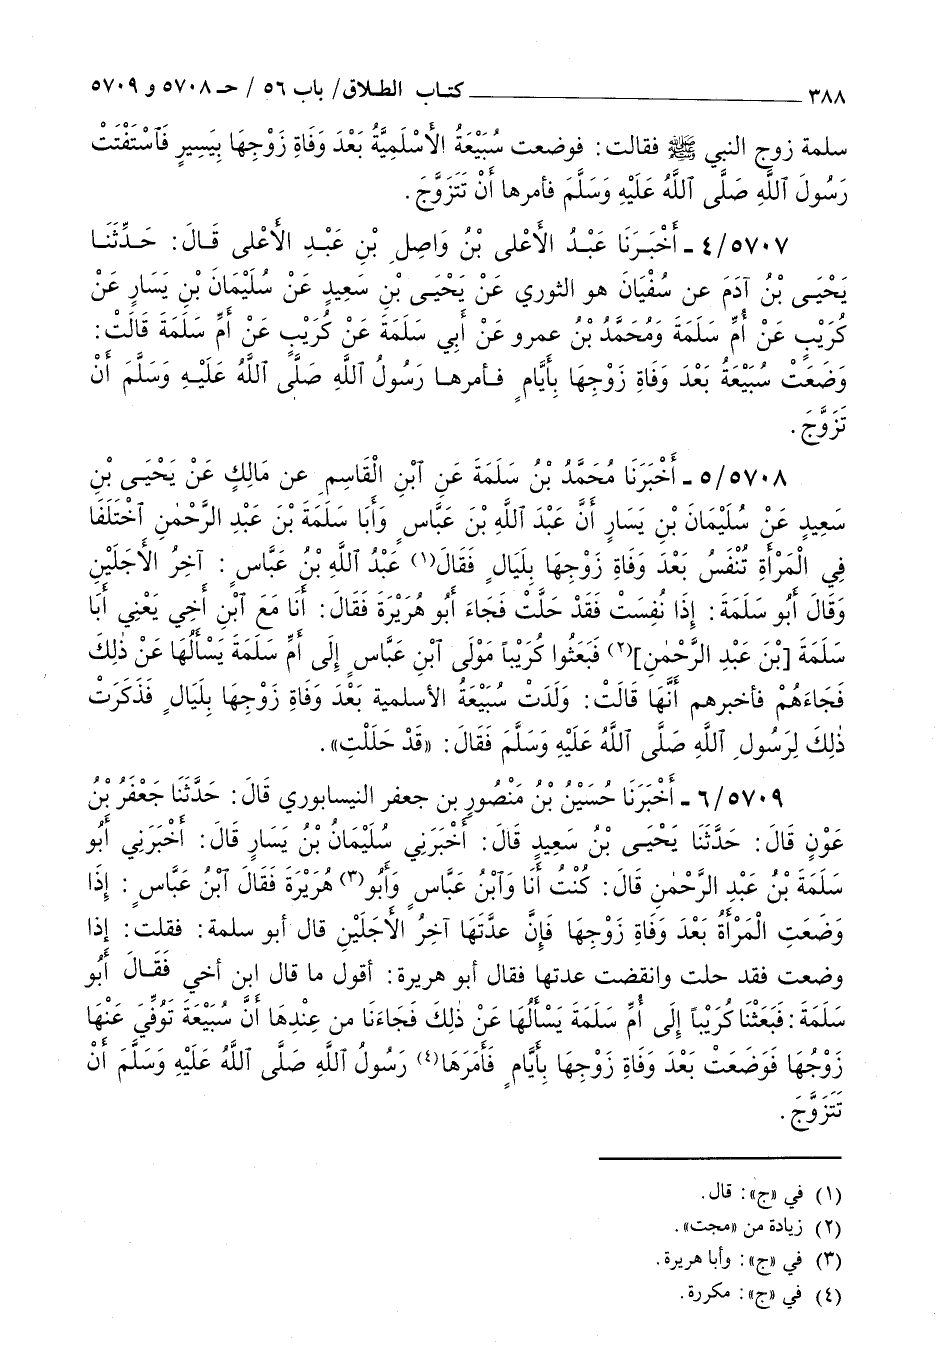 ٣٨٨ ــــــــ كتاب الطلاق/ باب ٥٦ / حـ ٥٧٠٨ و ٥٧٠٩
سلمة زوج النبي ﷺ فقالت: فوضعت سُبَيْعَةُ الأَسْلَمِيَّةُ بَعْدَ وَفَاةِ زَوْجِهَا بِيَسِيرٍ فَٱسْتَفْتَتْ
رَسُولَ ٱللَّهِ صَلَّى ٱللَّهُ عَلَيْهِ وَسَلَّمَ فأمرها أَنْ تَتَزَوَّجَ.
٤/٥٧٠٧ ـ أَخْبَرَنَا عَبْدُ الأَعْلى بْنُ وَاصِلِ بْنِ عَبْدِ الأَعْلى قَالَ: حَدَّثَنَا
يَحْيَى بْنُ آدَمَ عن سُفْيَانَ هو الثوري عَنْ يَحْيَى بْنِ سَعِيدٍ عَنْ سُلَيْمَانَ بْنِ يَسَارٍ عَنْ
كُرَيْبٍ عَنْ أُمِّ سَلَمَةَ وَمُحَمَّدُ بْنُ عمرو عَنْ أَبِي سَلَمَةَ عَنْ كُرَيْبٍ عَنْ أُمِّ سَلَمَةَ قَالَتْ:
وَضَعَتْ سُبَيْعَةُ بَعْدَ وَفَاةِ زَوْجِهَا بِأَيَّامٍ فأمرها رَسُولُ ٱللَّهِ صَلَّى ٱللَّهُ عَلَيْهِ وَسَلَّمَ أَنْ
تَزَوَّجَ.
٥/٥٧٠٨ ـ أَخْبَرَنَا مُحَمَّدُ بْنُ سَلَمَةَ عَنِ ٱبْنِ الْقَاسِمِ عن مَالِكٍ عَنْ يَحْيَى بْنِ
سَعِيدٍ عَنْ سُلَيْمَانَ بْنِ يَسَارٍ أَنَّ عَبْدَ اللَّهِ بْنَ عَبَّاسٍ وَأَبَا سَلَمَةَ بْنَ عَبْدِ الرَّحْمٰنِ ٱخْتَلَفَا
فِي الْمَرْأَةِ تُنْفَسُ بَعْدَ وَفَاةِ زَوْجِهَا بِلَيَالٍ فَقَالَ(١) عَبْدُ اللَّهِ بْنُ عَبَّاسٍ: آخِرُ الأَجَلَيْنِ
وَقَالَ أَبُو سَلَمَةَ: إِذَا نُفِسَتْ فَقَدْ حَلَّتْ فَجَاءَ أَبُو هُرَيْرَةَ فَقَالَ: أَنَا مَعَ ٱبْنِ أَخِي يَعْنِي أَبَا
سَلَمَةَ [بْنَ عَبْدِ الرَّحْمٰنِ](٢) فَبَعَثُوا كُرَيْباً مَوْلَى ٱبْنِ عَبَّاسٍ إِلَى أُمِّ سَلَمَةَ يَسْأَلُهَا عَنْ ذٰلِكَ
فَجَاءَهُمْ فأخبرهم أَنَّهَا قَالَتْ: وَلَدَتْ سُبَيْعَةُ الأسلمية بَعْدَ وَفَاةِ زَوْجِهَا بِلَيَالٍ فَذَكَرَتْ
ذٰلِكَ لِرَسُولِ ٱللَّهِ صَلَّى ٱللَّهُ عَلَيْهِ وَسَلَّمَ فَقَالَ: «قَدْ حَلَلْتِ».
٦/٥٧٠٩ ـ أَخْبَرَنَا حُسَيْنُ بْنُ مَنْصُورٍ بن جعفر النيسابوري قَالَ: حَدَّثَنَا جَعْفَرُ بْنُ
عَوْنٍ قَالَ: حَدَّثَنَا يَحْيَى بْنُ سَعِيدٍ قَالَ: أَخْبَرَنِي سُلَيْمَانُ بْنُ يَسَارٍ قَالَ: أَخْبَرَنِي أَبُو
سَلَمَةَ بْنُ عَبْدِ الرَّحْمٰنِ قَالَ: كُنْتُ أَنَا وَٱبْنُ عَبَّاسٍ وَأَبُو(٣) هُرَيْرَةَ فَقَالَ ٱبْنُ عَبَّاسٍ: إِذَا
وَضَعَتِ الْمَرْأَةُ بَعْدَ وَفَاةِ زَوْجِهَا فَإِنَّ عدَّتَهَا آخِرُ الأَجَلَيْنِ قال أبو سلمة: فقلت: إذا
وضعت فقد حلت وانقضت عدتها فقال أبو هريرة: أقول ما قال ابن أخي فَقَالَ أَبُو
سَلَمَةَ: فَبَعَثْنَا كُرَيْباً إِلَى أُمِّ سَلَمَةَ يَسْأَلُهَا عَنْ ذٰلِكَ فَجَاءَنَا من عِنْدِهَا أَنَّ سُبَيْعَةَ تُوُفِّيَ عَنْهَا
زَوْجُهَا فَوَضَعَتْ بَعْدَ وَفَاةِ زَوْجِهَا بِأَيَّامٍ فَأَمَرَهَا(٤) رَسُولُ ٱللَّهِ صَلَّى ٱللَّهُ عَلَيْهِ وَسَلَّمَ أَنْ
تَتَزَوَّجَ.
(١) في «ج»: قال.
(٢) زيادة من «مجت».
(٣) في «ج»: وأبا هريرة.
(٤) في «ج»: مكررة.